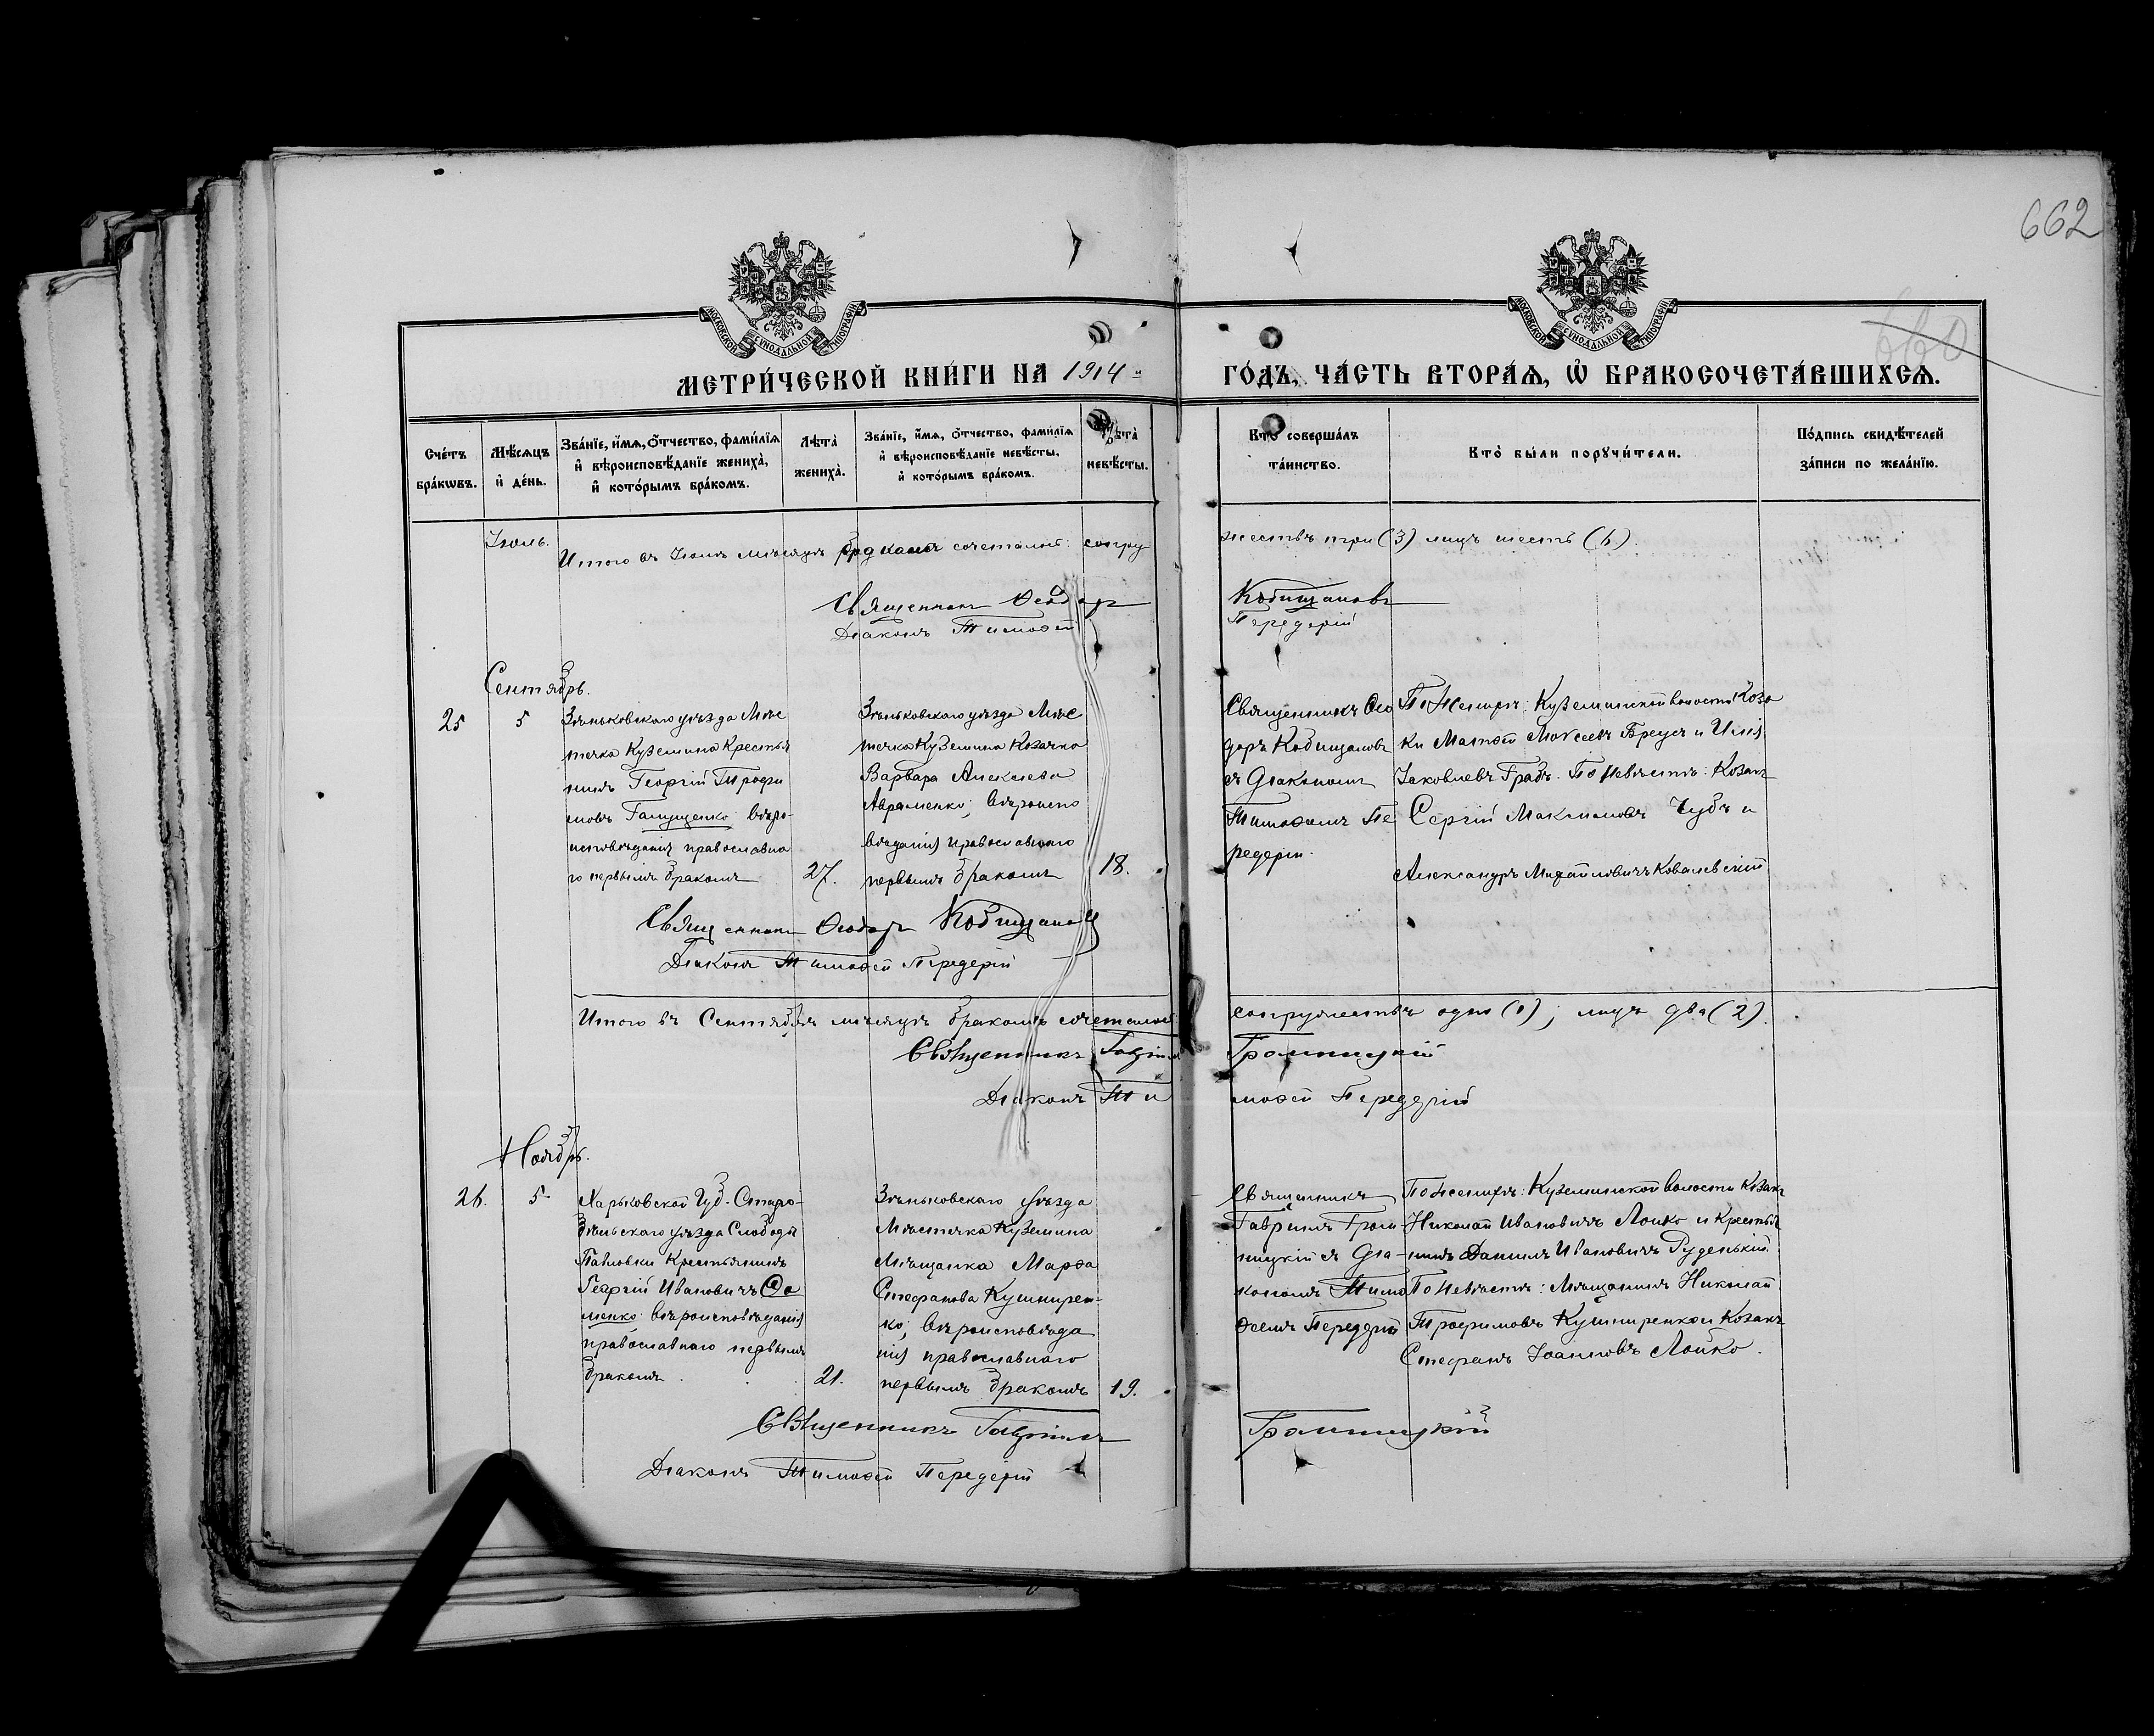 662
660
МОСКОВСКОЙ СѴНОДАЛЬНОЙ ТИПОГРАФІИ
МОСКОВСКОЙ СѴНОДАЛЬНОЙ ТИПОГРАФІИ
МЕТРИ́ЧЕСКОЙ КНИ́ГИ НА 1914 й
ГО́ДЪ, ЧА́СТЬ ВТОРА́Ѧ, Ѡ҆ БРАКОСОЧЕТА́ВШИХСѦ.
Сче́тъ
бра́кѡвъ.
Мѣ́сѧцъ
и҆ де́нь.
Зва́нїе, и҆́мѧ, ѻ҆́тчество, фами́лїѧ
и҆ вѣроисповѣ́данїе жениха̀,
и҆ кото́рымъ бра́комъ.
Лѣта̀
жениха̀.
Зва́нїе, и҆́мѧ, ѻ҆́тчество, фами́лїѧ
и҆ вѣроисповѣ́данїе невѣ́сты,
и҆ кото́рымъ бра́комъ.
Лѣта̀
невѣ́сты.
Кто̀ соверша́лъ
та́инство.
Кто̀ бы́ли порꙋчи́тели.
По́дпись свидѣ́телей
за́писи по жела́нїю.
Іюль.
Итого въ Іюлѣ мѣсяцѣ бракомъ сочеталось супру
жествъ три (3) лицъ шесть (6).
Священникъ Ѳеодоръ
Кобищановъ
Діаконъ Тимоѳей
Передерій
Сентябрь.
25
5
Зѣньковскаго уѣзда Мѣс
течка Куземина Крестья
нинъ Георгій Трофи
мовъ Галущенко вѣро-
исповѣданія православна
го первымъ бракомъ
27.
Зѣньковскаго уѣзда Мѣс
течка Куземина Козачка
Варвара Алексѣева
Авраменко; вѣроиспо
вѣданія православнаго
первымъ бракомъ
18.
Священникъ Ѳео
доръ Кобищановъ
съ Діакономъ
Тимоѳеемъ Пе
редерій.
По Женихѣ: Куземинской волости Коза
ки Матѳей Моисеевъ Бреусъ и Илія
Іаковлевъ Грабъ. По Невѣстѣ: Козакъ
Сергій Максимовъ Чубъ и
Александръ Михайловичъ Ковалевскій
Священникъ Ѳеодоръ Кобищановъ
Діаконъ Тимоѳей Передерій
Итого въ Сентябрѣ мѣсяцѣ бракомъ сочеталось
супружествъ одно (1); лицъ два (2).
Священникъ Гавріилъ
Громницкій
Діаконъ Ти
моѳей Передерій
Ноябрь.
26.
5
Харьковской Губ. Старо-
бѣльскаго уѣзда Слободы
Павловки Крестьянинъ
Георгій Ивановичъ Ѳо
менко вѣроисповѣданія
православнаго первымъ
бракомъ
21.
Зѣньковскаго уѣзда
Мѣстечка Куземина
Мѣщанка Марѳа
Стефанова Кушнирен-
ко; вѣроисповѣда
нія православнаго
первымъ бракомъ
19.
Священникъ
Гавріилъ Гром
ницкій съ Діа-
кономъ Тимо
ѳеемъ Передерій
По Женихѣ: Куземинской волости Козакъ
Николай Ивановичъ Лойко и Крестья
нинъ Даніилъ Ивановичъ Руденькій.
По Невѣстѣ: Мѣщанинъ Николай
Трофимовъ Кушниренко и Козакъ
Стефанъ Іоанновъ Лойко.
Священникъ Гавріилъ
Громницкій
Діаконъ Тимоѳей Передерій